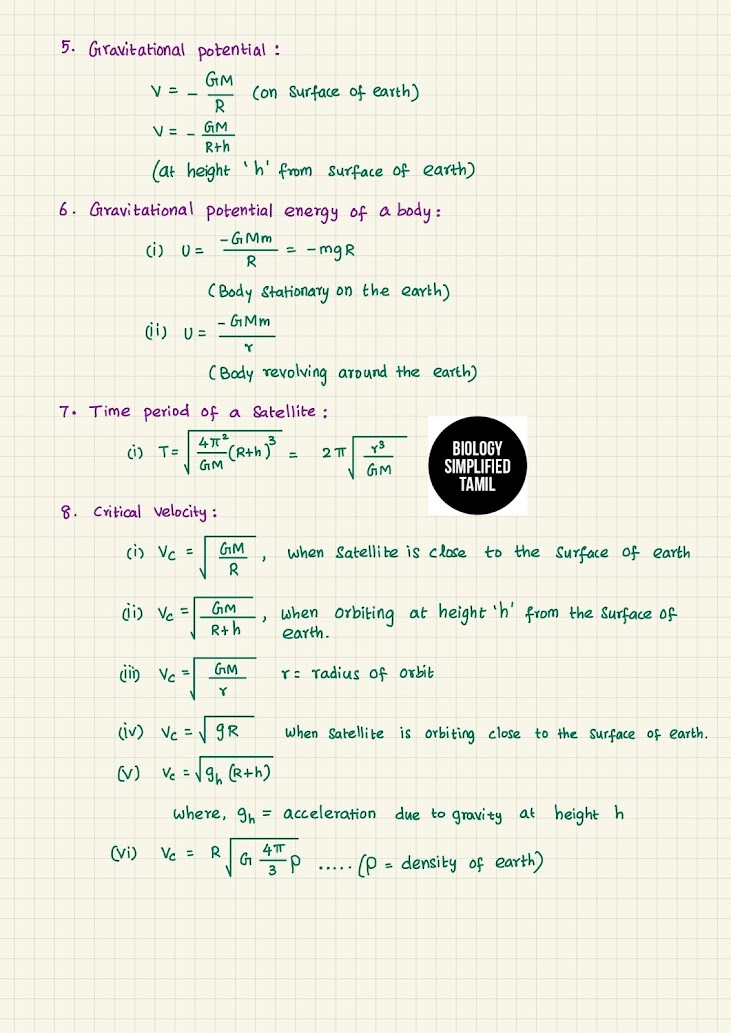 5. Gravitational potential :
V = - GM/R (on surface of earth)
V = - GM/R+h
(at height 'h' from surface of earth)
6. Gravitational potential energy of a body :
(i) U = -GMm/R = -mgR
(Body stationary on the earth)
(ii) U = -GMm/r
(Body revolving around the earth)
7. Time period of a satellite :
(i) T = √(4π²/GM (R+h)³) = 2π √(r³/GM)
BIOLOGY
SIMPLIFIED
TAMIL
8. Critical velocity :
(i) Vc = √(GM/R), when satellite is close to the surface of earth
(ii) Vc = √(GM/R+h), when orbiting at height 'h' from the surface of
earth.
(iii) Vc = √(GM/r) r = radius of orbit
(iv) Vc = √gR when satellite is orbiting close to the surface of earth.
(v) Vc = √gh (R+h)
where, gh = acceleration due to gravity at height h
(vi) Vc = R √(G 4π/3 ρ) ..... (ρ = density of earth)